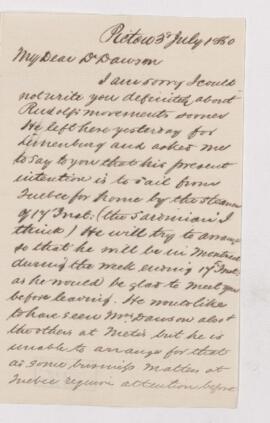 Pictou 3d July 1880
My Dear Dr Dawson
I am sorry I could
not write you definitely about
Rudolf's movements sooner
He left here yesterday for
Lunenburg and asked me
to say to you that his present
intention is to sail from
Quebec for home by the steamer
of 17 Inst: (the Sardinian I
think) He will try to arrange
so that he will be in Montreal
during the week ending 17 Inst:
as he would be glad to meet you
before leaving. He would like
to have seen Mrs Dawson also &
the others at Metis but he is
unable to arrange for that
as some business matters at
Quebec require attention before